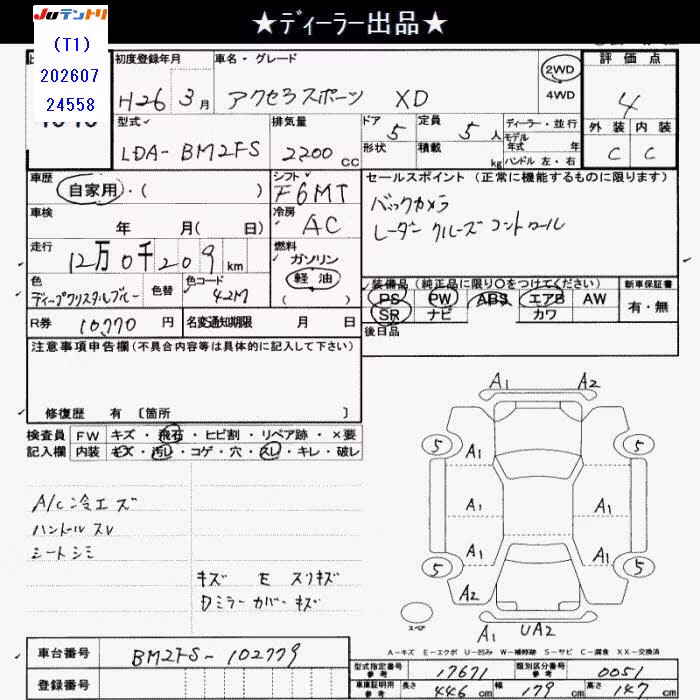 ★ディーラー出品★
JUテントリ
(T1)
202607
24558
初度登録年月
H26年 3月
車名・グレード
アクセラスポーツ XD
2WD
4WD
評価点
4
外装 内装
C C
型式
LDA-BM2FS
排気量
2200 cc
ドア 5
形状
定員 5 人
積載 kg
ディーラー・並行
モデル年式 年
ハンドル 左・右
車歴
自家用・( )
シフト
F6MT
セールスポイント (正常に機能するものに限ります)
バックカメラ
レーダークルーズコントロール
車検
年 月( 日)
冷房
AC
走行
12万0千209 km
燃料
ガソリン
軽油
色
ディープクリスタルブルー
色替
色コード
42M
装備品 (純正品に限り〇をつけてください)
PS PW ABS エアB AW
SR ナビ カワ
新車保証書
有・無
後日品
R券 10,770 円
名変通知期限 月 日
注意事項申告欄 (不具合内容等は具体的に記入して下さい)
修復歴 有 〔箇所 〕
検査員記入欄
FW キズ・飛石・ヒビ割・リペア跡・×要
内装 キズ・汚レ・コゲ・穴・スレ・キレ・破レ
A/C冷エズ
ハンドルスレ
シートシミ
キズ E スリキズ
Dミラーカバーキズ
A1 A2
5 A1 5
A1 A1
A1 A1
5 A2 5
スペア
A1 UA2
A-キズ E-エクボ U-凹み W-補修跡 S-サビ C-腐食 XX-交換済
車台番号
BM2FS-102779
登録番号
型式指定番号 参考
17671
類別区分番号 参考
0051
車庫証明用 参考
長さ 446 cm 幅 179 cm 高さ 147 cm